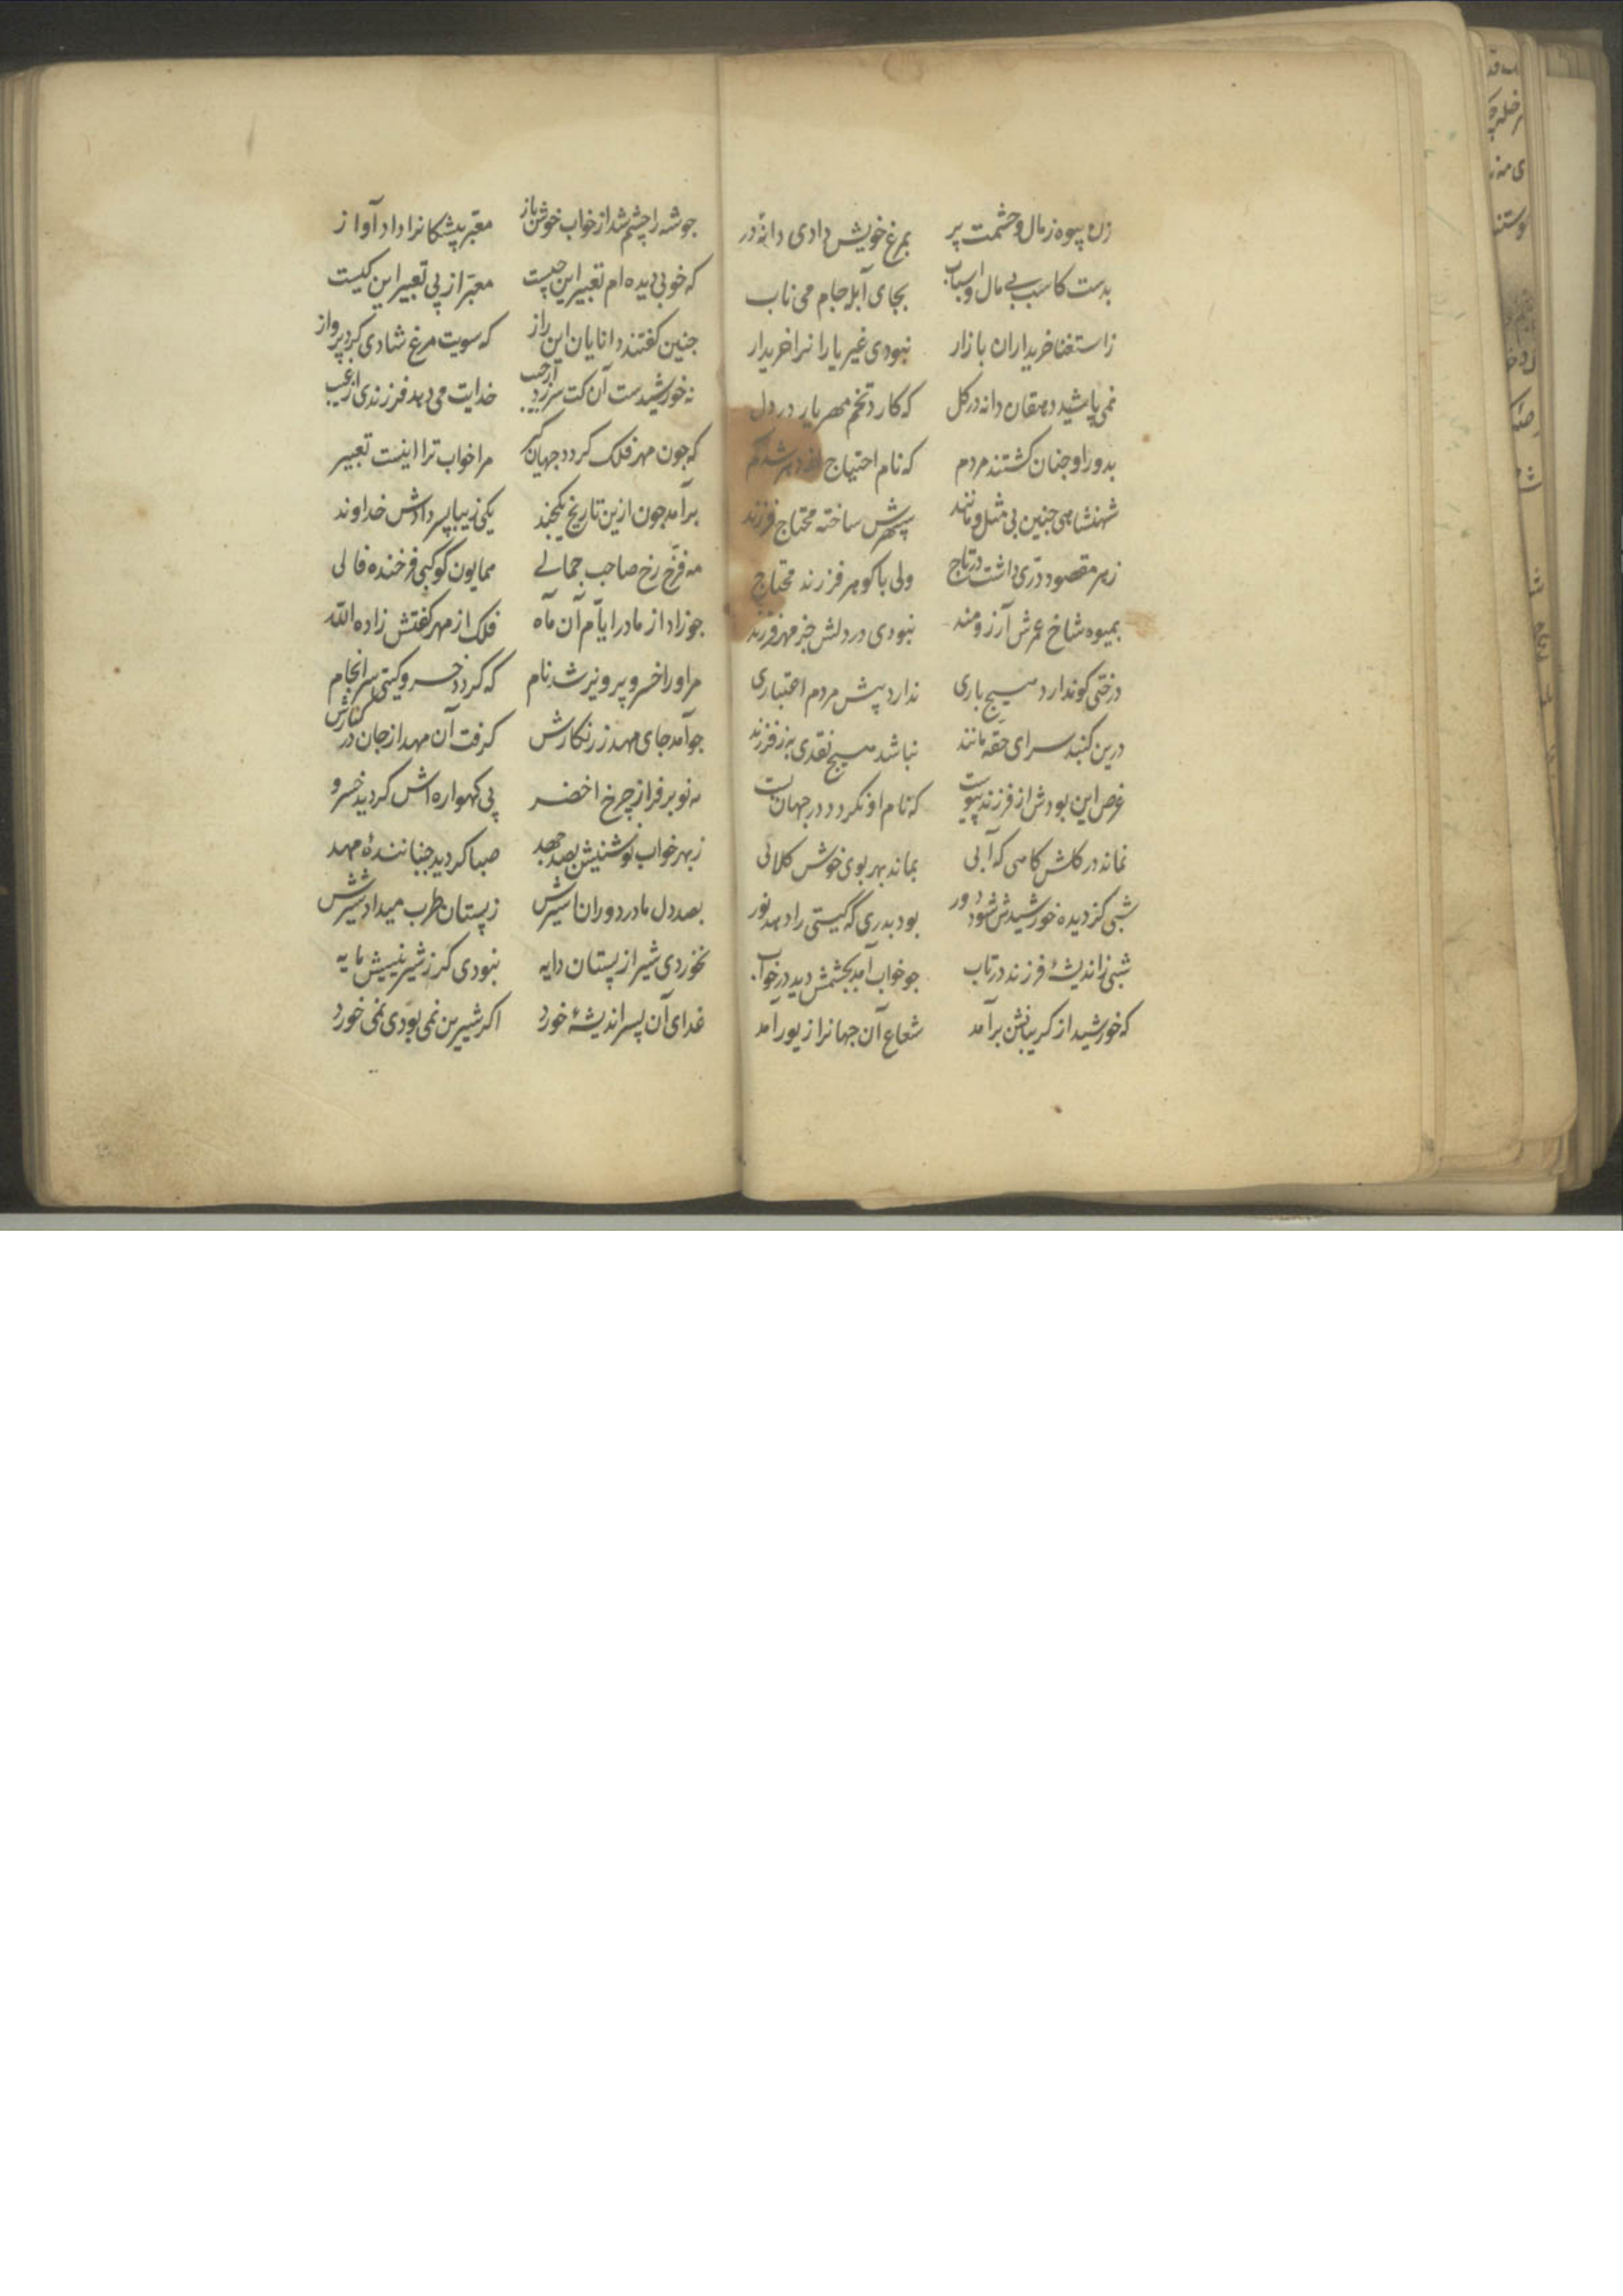 زن پیوه زمال و حشمت پر بمرغ خویش دادی دانهٔ در
بدست کاسب بی مال و اسباب بجای آبله جام می ناب
زاستغنا خریداران بازار نبودی غیر یارانرا خریدار
نمی پاشید دهقان دانه در کل که کارد تخم مهر یار در دل
بدور او جنان کشتند مردم که نام احتیاج از دهر شد کم
شهنشاهی جنین بی مثل و مانند سپهرش ساخته محتاج فرزند
زهر مقصود درّی داشت در تاج ولی با کوهر فرزند محتاج
بمیوه شاخ عمرش آرزومند نبودی در دلش جز مهر فرزند
درختی کو ندارد هیچ باری ندارد پیش مردم اعتباری
درین کنبد سرای حقه مانند نباشد هیچ نقدی به ز فرزند
غرض این بودش از فرزند پیوست که نام او نکردد در جهان پست
نماند در کلش کاهی که آبی بماند بهر بوی خوش کلابی
شبی کز دیده خورشیدش شود دور بود بدری که کیتی را دهد نور
شبی زاندیشهٔ فرزند در تاب جو خواب آمد بجشمش دید در خواب
که خورشید از کریبانش برآمد شعاع آن جهانرا زیور آمد
جو شه را چشم شد از خواب خوش باز معبّر پیشکانرا داد آواز
که خوبی دیده ام تعبیر این چیست معبّر از پی تعبیر این کیست
جنین کفتند دانایان این راز که سویت مرغ شادی کرد پرواز
نه خورشیدست آن کت سر زد از جیب خدایت می دهد فرزندی از غیب
که جون مهر فلک کردد جهان کیر مرا خواب ترا اینست تعبیر
برآمد جون ازین تاریخ یکجند یکی زیبا پسر دادش خداوند
مه فرّخ رخ صاحب جمالی همایون کوکبی فرخنده فالی
جو زاد از مادر ایّام آن ماه فلک از مهر کفتش زاده الله
مر اورا خسرو پرویز شد نام که کردد خسرو کیتی سرانجام
جو آمد جای مهد زرنکارش کرفت آن مهد از جان در کنارش
مه نو بر فراز چرخ اخضر پی کهواره اش کردید خسرو
زبهر خواب نوشینش بصد جهد صبا کردید جنبانندهٔ مهد
بصد دل مادر دوران اسیرش زپستان طرب میداد شیرش
نخوردی شیر از پستان دایه نبودی کر ز شیرینیش مایه
غدای آن پسر اندیشهٔ خورد اکر شیرین نمی بودی نمی خورد